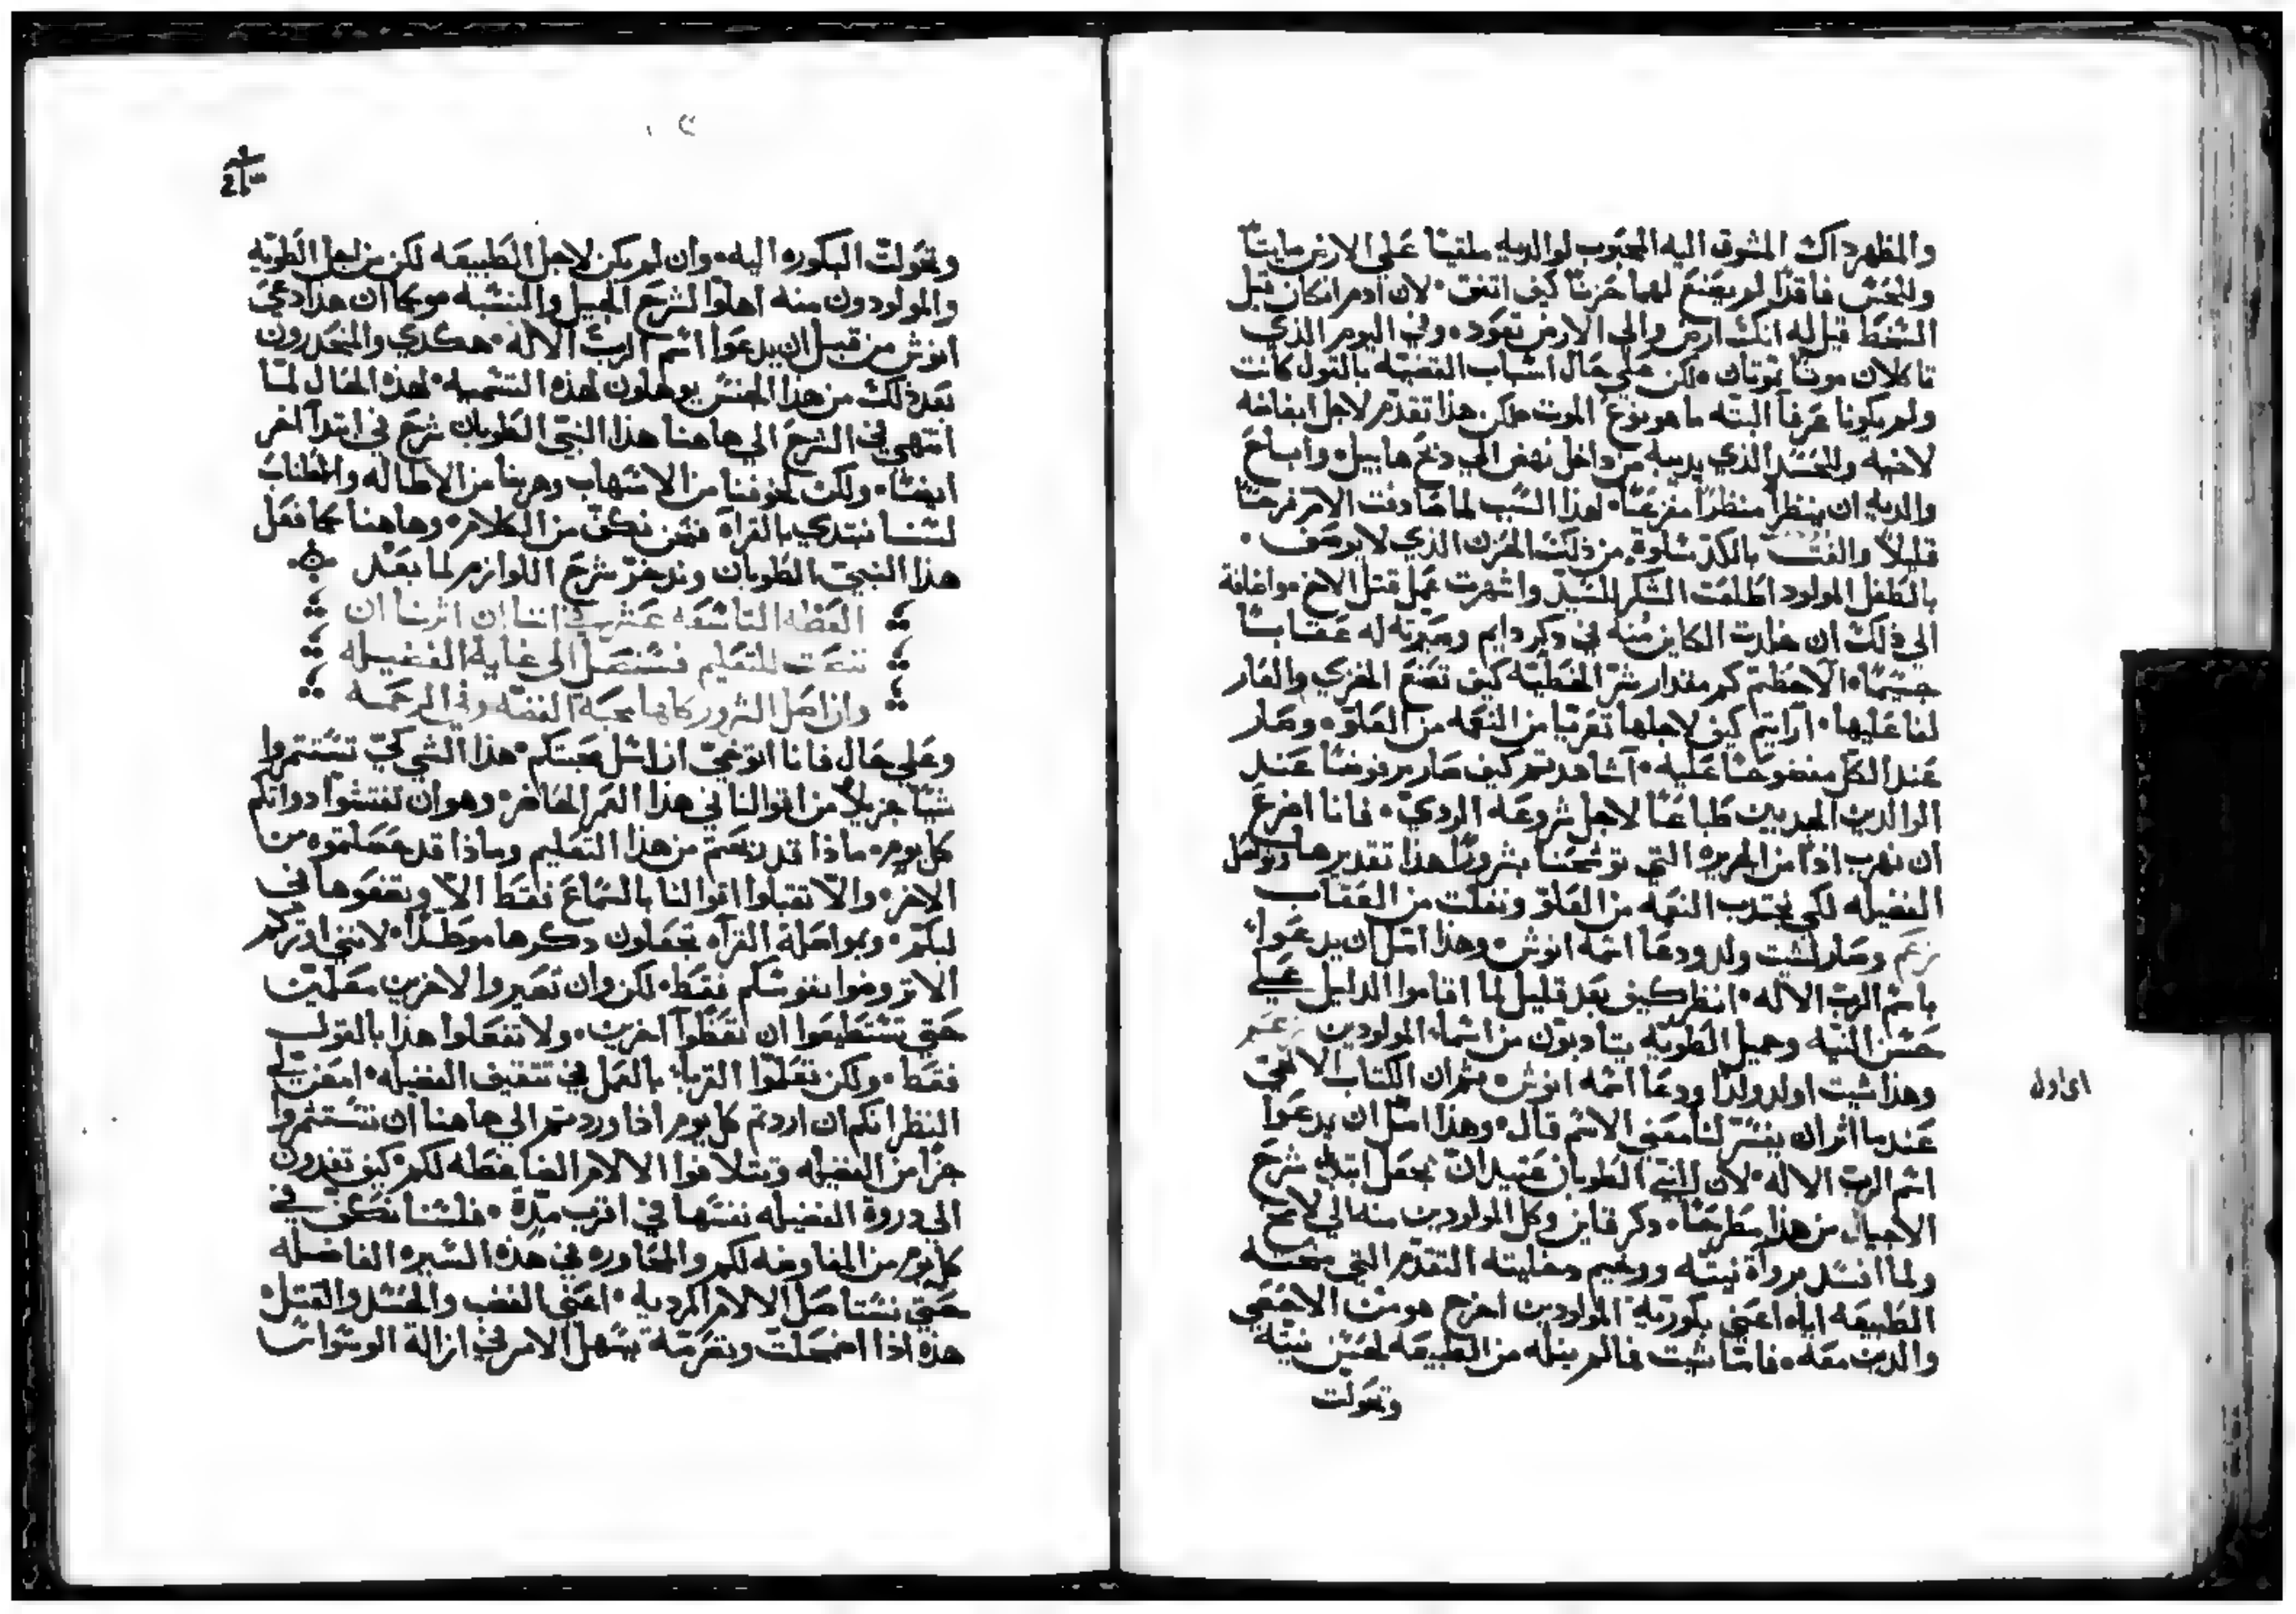 والمنظر داك المشوق اليه المحبوب لوالديه ملقيًا علي الارض مايتًا
وللحس فاقدًا لم يصنع لهما حزنًا كيف اتفق • لان ادم اذ كان قبل
السخط قيل له انك ارض والي الارض تعود • وفي اليوم الذي
تاكلان موتًا تموتان • لكن علي حال اسباب القضيه بالقول كانت
ولم يكونا عرفا البته ما هو نوع الموت • لكن هذا تقدم لاجل ابغاضه
لاخيه وللحسد الذي يدبيه من داخل نهض الي دبح هابيل • واباح
والديه ان ينظرا منظرًا مفزعًا • لهذا السبب لما صادفت الام فرحًا
قليلًا والفت بالكد سلوة من ذلك الحزن الذي لا يوصف •
بالطفل المولود اطلعت الشكر للسيد واشهرت عمل قتل الاخ مواضافة
الي ذلك ان خلدت الكاين منه في دكر دايم وصيرته له عقابًا
جسيمًا • الاحظتم كم مقدار شر الخطيه كيف تصنع الخزي والعار
لفاعليها • ارايتم كيف لاجلها تعريا من النعمه من العلو • وصار
عند الكل مفضوحًا عليه • اشاهدتم كيف صار مرفوضًا عند
الوالدين المحبين طباعًا لاجل شروعه الردي • فانا اضرع
ان نهرب اذًا من الجريره التي توشحنا بشرور هذا تقديرها ونوصل
الفضيله لكي نجتدب النعمه من العلو ونفلت من العقاب
زعم وصار لشيت ولد ودعا اسمه انوش • وهذا امل ان يدعوا
باسم الرب الاله • انظر كيف بعد قليل لما اقاموا الدليل علي
حسن النيه وجميل الطويه يتادبون من اسماء المولودين زعم
وهذا شيت اولد ولدًا ودعا اسمه انوش • ثم ان الكتاب الالهي
عندما اثر ان يفسر لنا معني الاسم قال • وهذا امل ان يدعوا
اسم الرب الاله • لان النبي الطوبان عتيد ان يجعل ابتدا شرح
الاجيال من هذا مطرحًا • دكر قاين وكل المولودين منه الي لامخ
ولما افسد برداة نيته ووخيم مخليته التقدم التي منحته
الطبيعه اياه اعني بكورية المولودين اخرج هو من الاحصي
والدين معه • فاما شيت فما لم ينله من الطبيعه لحسن نيته
وتحولت
اي اول
وتحولت البكوره اليه • وان لم يكن لاجل الطبيعه لكن من اجل الطويه
والمولودون منه اهلوا لشرح الجميل والنسبه • وكما ان هذا دعي
انوش من قبل ان يدعوا اسم الرب الاله • هكدي والمنحدرون
بعد ذلك من هذا الجنس يوهلون لهذه التسميه • لهذه الحال لما
انتهي في الشرح الي هاهنا هذا النبي الطوبان شرع في ابتدا اخر
ايضًا • ولكن لخوفنا من الاسهاب وهربنا من الاطاله والاطناب
لسنا نبتدي بالقراة فنحن نكف من الكلام • وهاهنا كما فعل
هذا النبي الطوبان ونوخر شرح اللوازم لما بعد
العظه التاسعه عشر في اننا ان اثرنا ان
ننصت للتعليم فسنصل الي غاية الفضيله
وان اصل الشرور كلها محبة الفضه وفي الرحمه
وعلي حال فانا اتوخي ان اسل محبتكم • هذا الشي كي تستتمروا
شيًا جزيلًا من اقوالنا في هذا العمر الحاضر • وهو ان تفتشوا دواتكم
كل يوم • ماذا قد نفعكم من هذا التعليم وماذا قد حصلتموه من
الاخر • والا تقبلوا اقوالنا بالسماع فقط الا وتضعوها في
لبكم • وبمواصلة القراه تجعلون دكرها موطدًا • لانني اوثركم
الا تروضوا نفوسكم فقط • لكن وان تصيروا لاخرين معلمين
حتي تستطيعوا ان تعظوا اخرين • ولا تفعلوا هذا بالقول
فقط • ولكن تعلموا القربا بالعمل في تتقيف الفضيله • امعن
النظر انكم ان اردتم كل يوم اذا وردتم الي هاهنا ان تستتمروا
جزا من الفضيله وتتلافوا الالام الضاغطه لكم • كيف تغدون
الي دروة الفضيله نفسها في اقرب مدة • فلسنا نكف في
كل يوم من المفاوضه لكم والمحاوره في هذه السيره الفاضله
حتي نستاصل الالام المرديه • اعني الغضب والحسد والقتل •
هذه اذا اضمحلت وتغرمة يسهل الامر في ازالة الوسواس